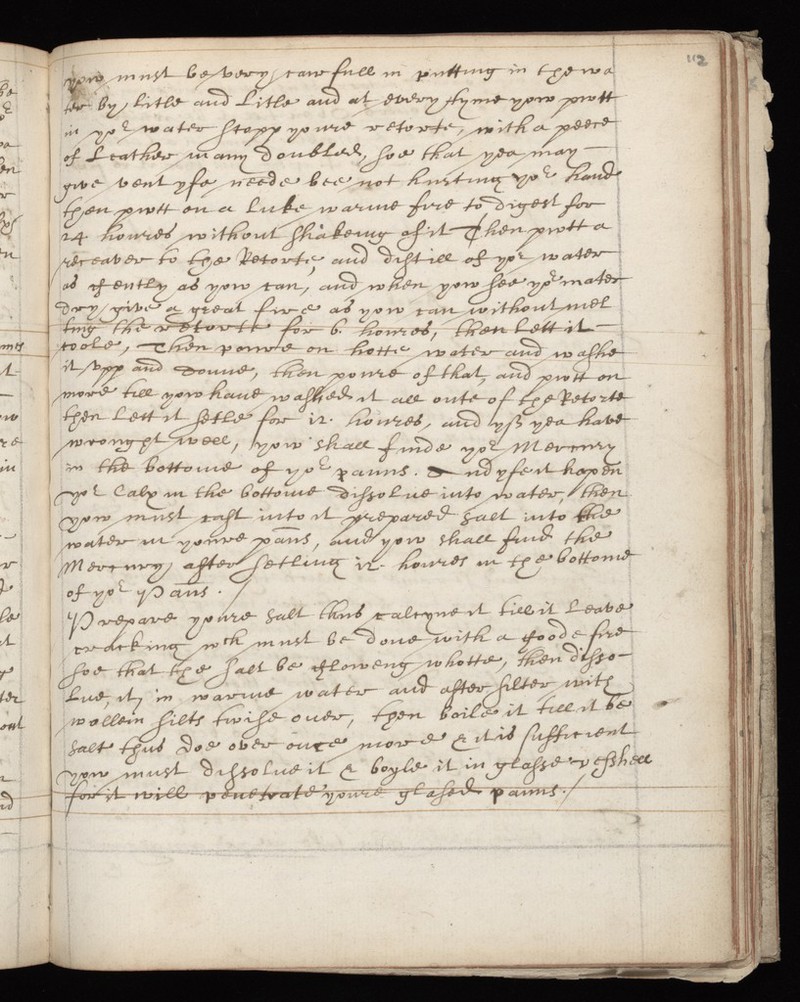 112
yow must be very carefull in putting in the wa
ter by litle and litle and at every tyme yow putt
in yor water stopp youre retorte, with a peece
of Leather many doubled, soe that yea may
give vent yfe neede bee not hurting yor hand
then putt on a luke warme fire to digest for
24 houres without shakeing of it Then putt a
receaver to the Retorte, and distill of yor water
as gently as yow can, and when yow see yor mater
dry give a great fire as yow can without mel
ting the retorte for 6 houres, then lett it
coole, Then poure on hotte water and washe
it upp and doune, then poure of that, and putt on
more till yow have washed it all oute of the Retorte
then lett it setle for 12. houres, and yff yea have
wrought well, yow shall finde yor Mercury
in the bottome of yor panns. And yfe it hapen
yor Calx in the bottome dissolve into water, then
yow must cast into it prepared salt into the
water in youre panns, and yow shall find the
Mercury after setling 12. houres in the bottome
of yor Panns.
Prepare youre salt thus calcyne it till it leave
cracking wch must be done with a goode fire
soe that the salt be gloweng whotte, then disso-
lve, it, in warme water and after filter with
wollein filts twise over, then boile it till it be
salt thus doe over once more & it is sufficient
yow must dissolve it & boyle it in glasse vesshell
for it will penetrate youre glased panns.